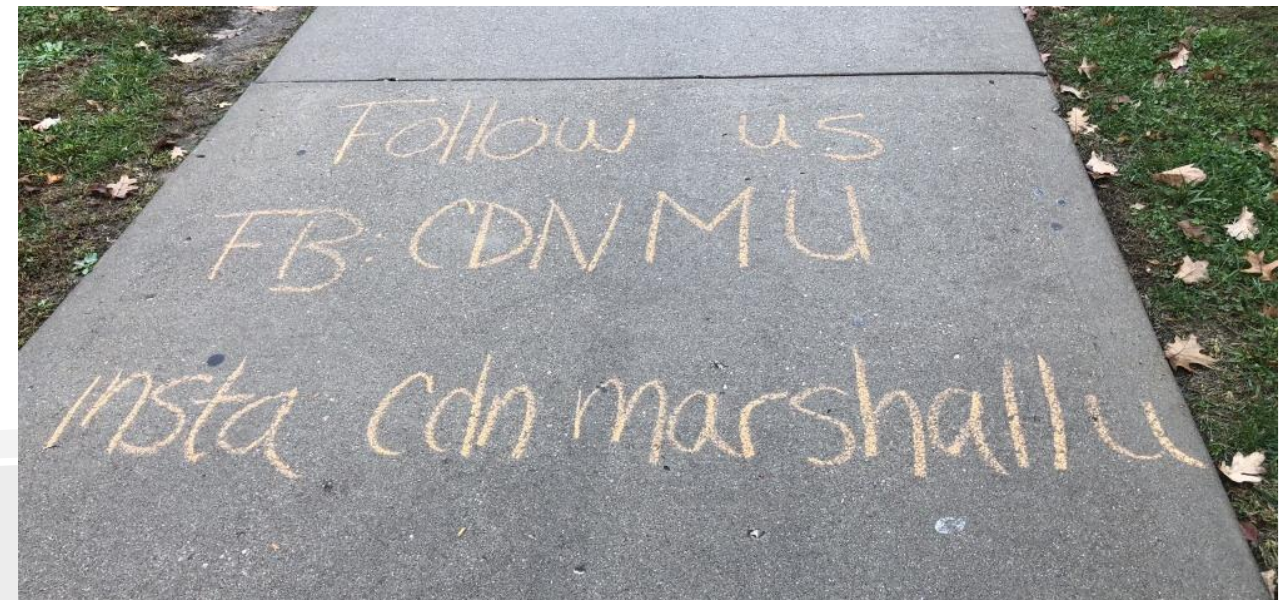 Follow us
FB: CDNMU
insta cdnmarshallu